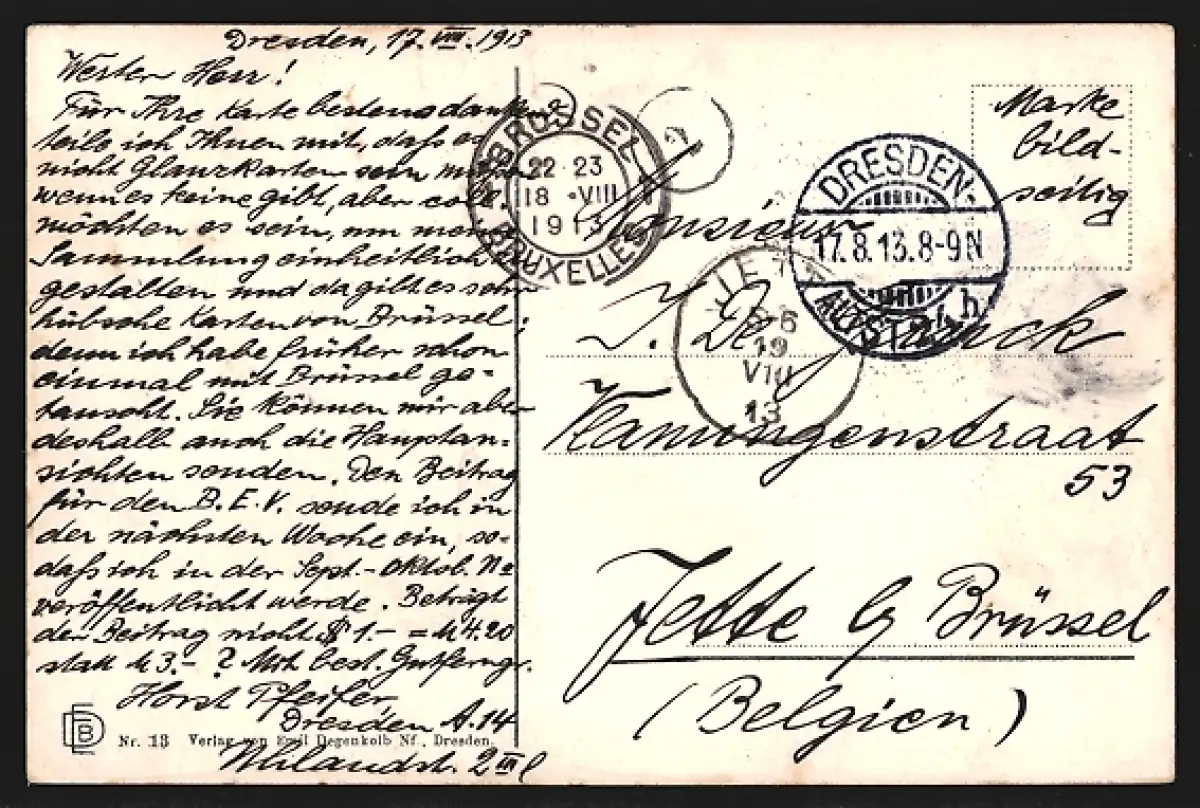 Dresden, 17. VIII. 1913
Werter Herr!
Für Ihre Karte bestens dankend
teile ich Ihnen mit, dafs es
nicht Glanzkarten sein müssen
wenn es keine gibt, aber col.
möchten es sein, um meine
Sammlung einheitlich zu
gestalten und da gibt es sehr
hübsche Karten von Brüssel;
denn ich habe früher schon
einmal mit Brüssel ge-
tauscht. Sie können mir aber
deshalb auch die Hauptan-
sichten senden. Den Beitrag
für den B.E.V. sende ich in
der nächsten Woche ein, so-
dafs ich in der Sept.-Oktob. No
veröffentlicht werde. Beträgt
der Beitrag nicht $ 1.- = M 4.20
statt M 3.- ? Mit best. Gutferngr.
Horst Pfeifer,
Dresden A. 14
Uhlandst. 2 III l
EDB
Nr. 13 Verlag von Emil Degenkolb Nf., Dresden.
BRÜSSEL
22-23
18 VIII
1913
BRUXELLES
2
DRESDEN-
17.8.13.8-9N
ALTST. 4 h
Marke
bild-
seitig
Monsieur
JETTE
19
VIII
13
J. De
53
Jette b/ Brüssel
(Belgien)